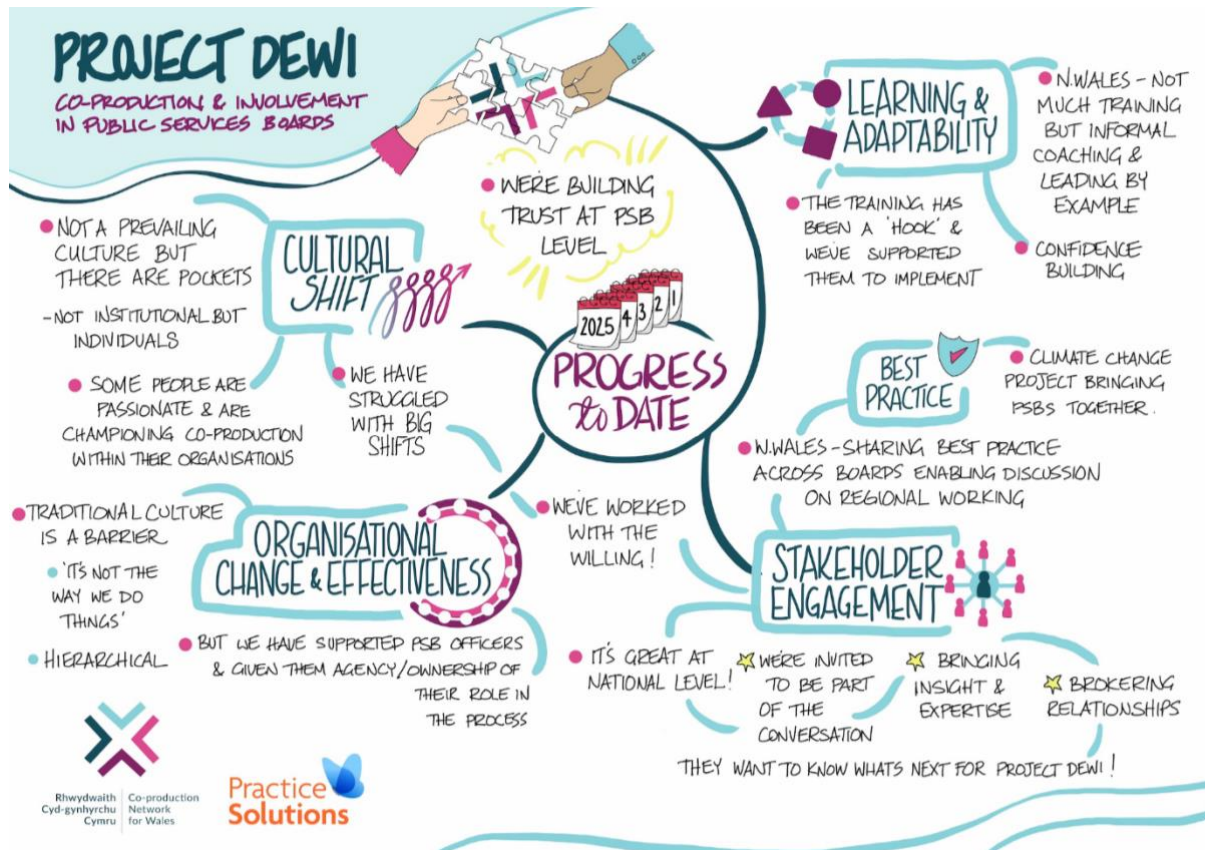 PROJECT DEWI
CO-PRODUCTION & INVOLVEMENT
IN PUBLIC SERVICES BOARDS
WE'RE BUILDING
TRUST AT PSB
LEVEL
2025 4 3 2 1
PROGRESS
to DATE
CULTURAL
SHIFT
NOT A PREVAILING
CULTURE BUT
THERE ARE POCKETS
-NOT INSTITUTIONAL BUT
INDIVIDUALS
SOME PEOPLE ARE
PASSIONATE & ARE
CHAMPIONING CO-PRODUCTION
WITHIN THEIR ORGANISATIONS
WE HAVE
STRUGGLED
WITH BIG
SHIFTS
LEARNING &
ADAPTABILITY
N.WALES - NOT
MUCH TRAINING
BUT INFORMAL
COACHING &
LEADING BY
EXAMPLE
THE TRAINING HAS
BEEN A 'HOOK' &
WE'VE SUPPORTED
THEM TO IMPLEMENT
CONFIDENCE
BUILDING
BEST
PRACTICE
CLIMATE CHANGE
PROJECT BRINGING
PSBS TOGETHER.
N.WALES - SHARING BEST PRACTICE
ACROSS BOARDS ENABLING DISCUSSION
ON REGIONAL WORKING
ORGANISATIONAL
CHANGE & EFFECTIVENESS
TRADITIONAL CULTURE
IS A BARRIER
'IT'S NOT THE
WAY WE DO
THINGS'
HIERARCHICAL
BUT WE HAVE SUPPORTED PSB OFFICERS
& GIVEN THEM AGENCY/OWNERSHIP OF
THEIR ROLE IN
THE PROCESS
WE'VE WORKED
WITH THE
WILLING!
STAKEHOLDER
ENGAGEMENT
IT'S GREAT AT
NATIONAL LEVEL!
WE'RE INVITED
TO BE PART
OF THE
CONVERSATION
BRINGING
INSIGHT &
EXPERTISE
BROKERING
RELATIONSHIPS
THEY WANT TO KNOW WHATS NEXT FOR PROJECT DEWI!
Rhwydwaith
Cyd-gynhyrchu
Cymru
Co-production
Network
for Wales
Practice
Solutions